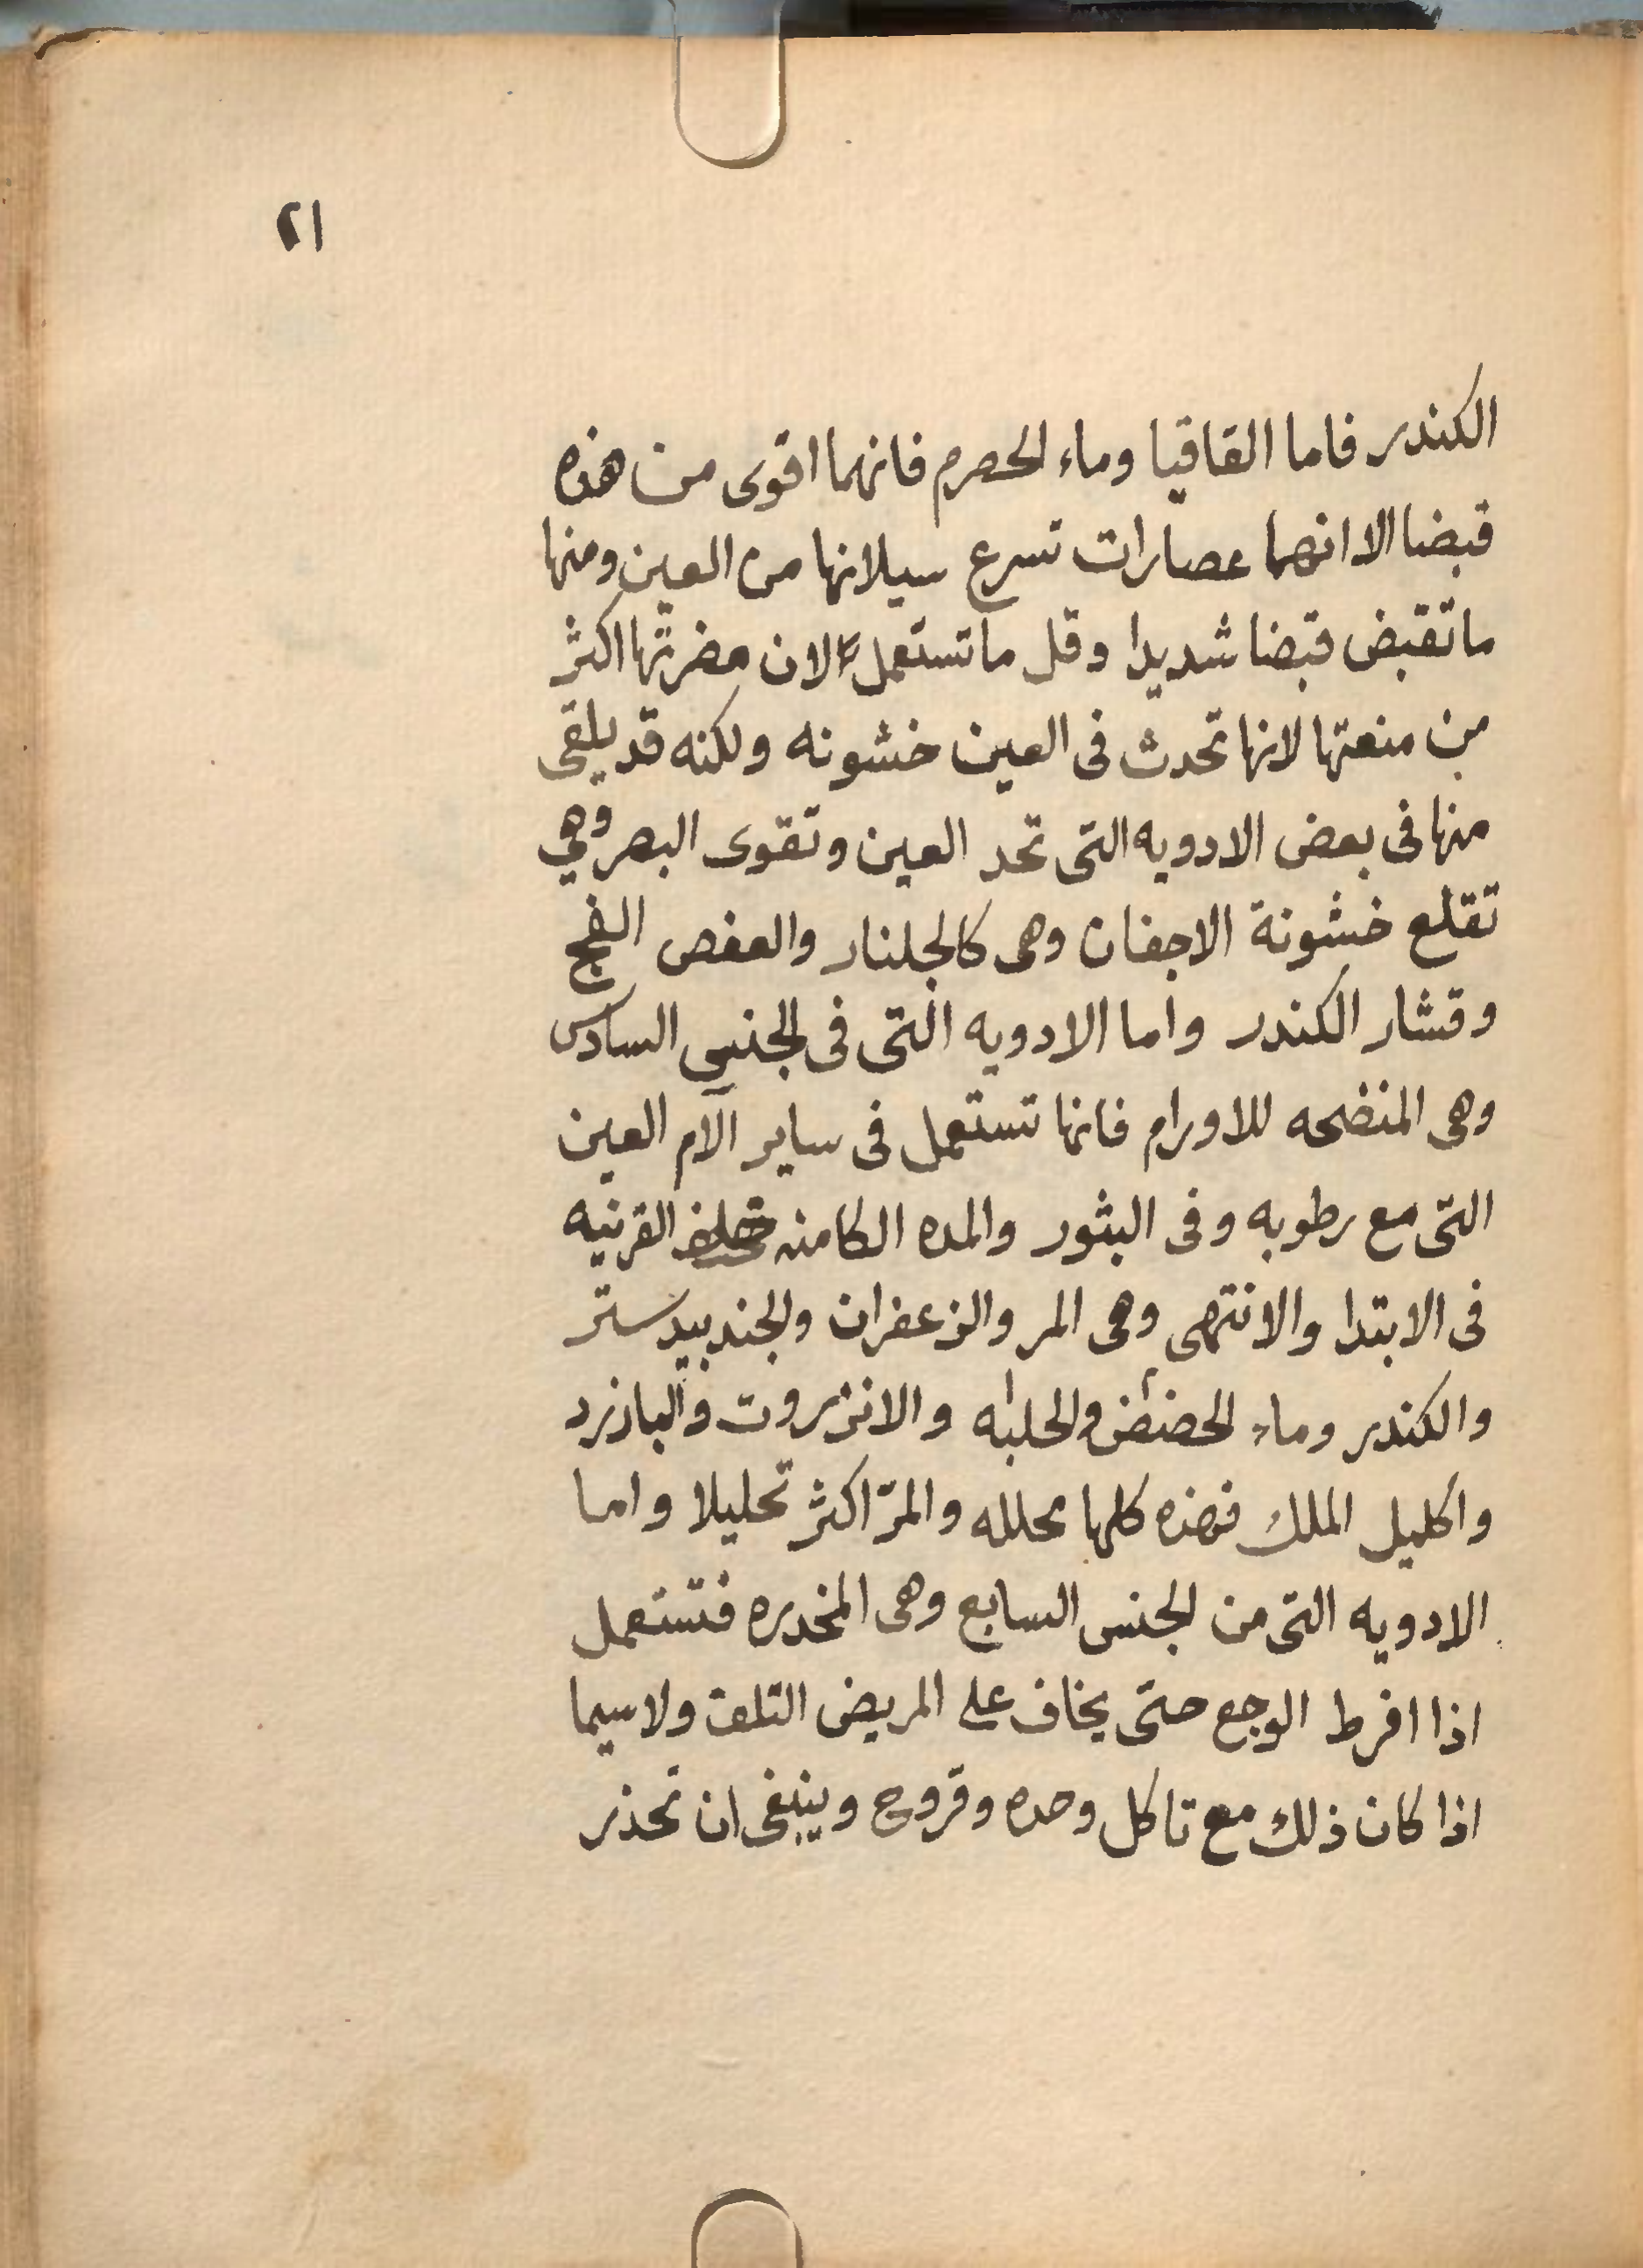 ٢١
الكندر فاما القاقيا وماء الحصرم فانهما اقوى من هذه
قبضا الا انهما عصارات تسرع سيلانها من العين ومنها
ما تقبض قبضا شديدا وقل ما تستعمل الان مضرتها اكثر
من منعتها لانها تحدث فى العين خشونه ولكنه قد يلقى
منها فى بعض الادويه التى تحد العين وتقوى البصر وهي
تقلع خشونة الاجفان وهى كالجلنار والعفص الفج
وقشار الكندر واما الادويه التى فى الجنس السادس
وهى المنضجه للاورام فانها تستعمل فى ساير آلام العين
التى مع رطوبه وفى البثور والمده الكامنه خلف القرنيه
فى الابتدا والانتهى وهى المر والزعفران والجندبيدستر
والكندر وماء والحلبه والانزروت والبازرد
واكليل الملك فهذه كلها محلله والمرّ اكثر تحليلا واما
الادويه التى من الجنس السابع وهى المخدره فتستعمل
اذا افرط الوجع حتى يخاف على المريض التلف ولاسيما
اذا كان ذلك مع تاكل وحده وقروح وينبغى ان تحذر